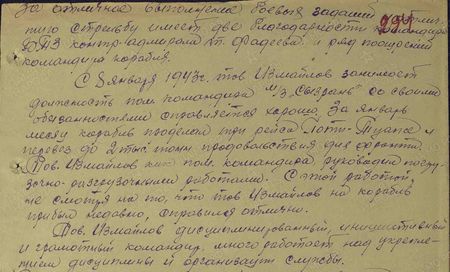 За отличное выполнение боевых заданий
тую стрельбу имеет две благодарности командира
контр-адмирала т. Фадеева и ряд поощрений
командира корабля.
С 8 января 1943г. тов Измайлов занимает
должность пом. командира "Сызрань" со своими
обязанностями справляется хорошо. За январь
месяц корабль проделал три рейса Поти-Туапсе и
перевез до 2 тыс тонн продовольствия для фронта.
Тов. Измайлов как пом. командира руководил погру-
зочно-разгрузочными работами. С этой работой,
не смотря на то, что тов Измайлов на корабль
прибыл недавно, справился отлично.
Тов. Измайлов дисциплинированный, инициативный
и грамотный командир. Много работает над укрепле-
нием дисциплины и организации службы.